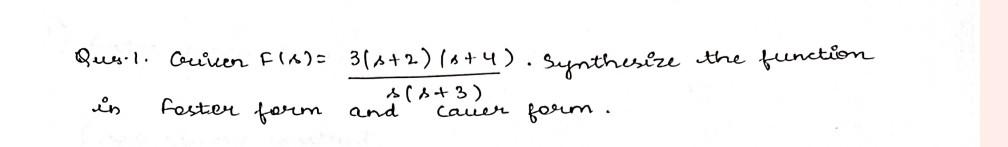 Ques.1. Given F(s) = 3(s+2)(s+4) / s(s+3) . Synthesize the function
in foster form and cauer form .